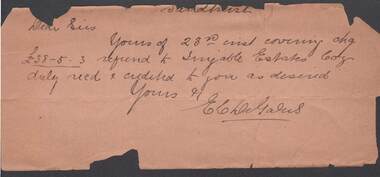 Sandhurst
Dear Sirs
Yours of 23rd inst covering chq
£38-5-3 refund to Irrigable Estates Coy
duly recd & credited to you as desired
Yours &